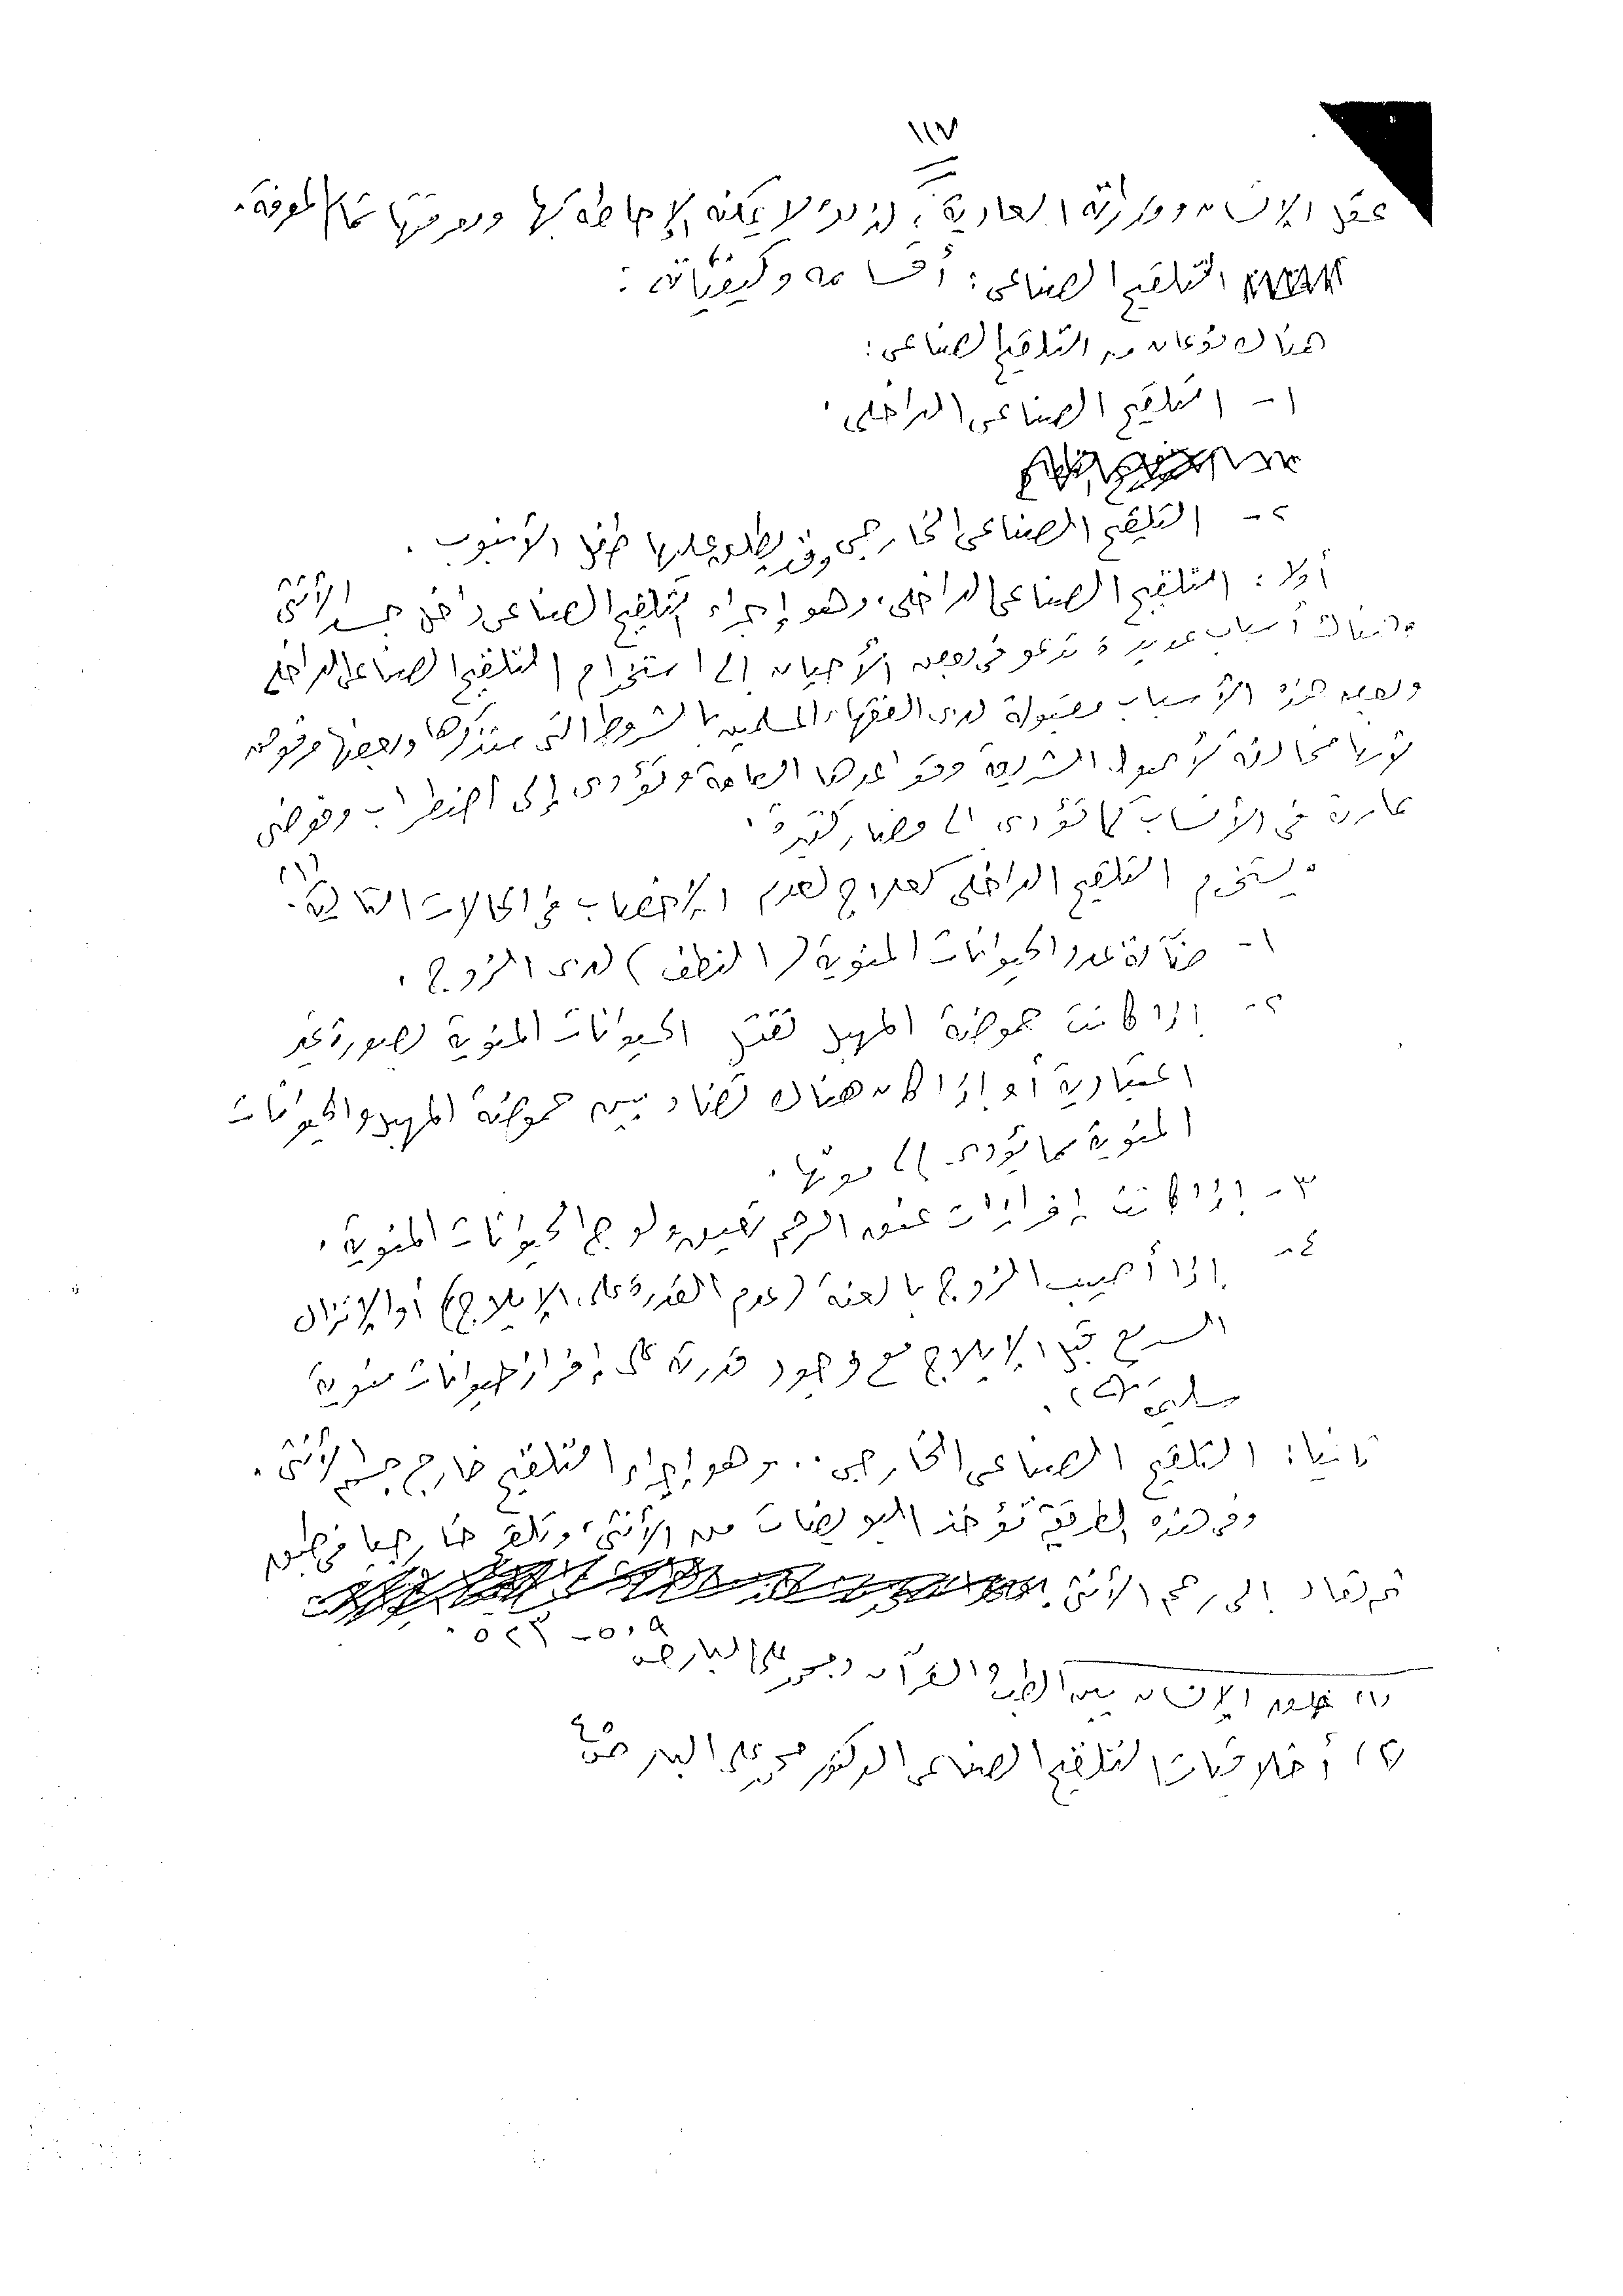 ١١٧
عقل الإنسان ومداركه العادية، لذلك لا يمكنه الإحاطة بها ومعرفتها تمام المعرفة.
التلقيح الصناعى: أقسامه وكيفياته:
هناك نوعان من التلقيح الصناعى:
١- التلقيح الصناعى الداخلى.
٢- التلقيح الصناعى الخارجى وقد يطلق عليها طفل الأنبوب.
أولا: التلقيح الصناعى الداخلى، وهو إجراء التلقيح الصناعى داخل جسد الأنثى
وهناك أسباب عديدة تدعو فى بعض الأحيان إلى استخدام التلقيح الصناعى الداخلى
وبعض هذه الأسباب مقبولة لدى الفقهاء المسلمين بالشروط التى سنذكرها وبعضها مرفوض
لأنها مخالفة لأصول الشريعة وقواعدها العامة وتؤدى إلى اضطراب وفوضى
عارمة فى الأنساب كما تؤدى إلى مضار كثيرة.
ويستخدم التلقيح الداخلى كعلاج لعدم الإخصاب فى الحالات التالية: (١)
١- ضآلة عدد الحيوانات المنوية (النطف) لدى الزوج.
٢- إذا كانت حموضة المهبل تقتل الحيوانات المنوية بصورة غير
اعتيادية أو إذا كان هناك تضاد بين حموضة المهبل والحيوانات
المنوية مما يؤدى إلى موتها.
٣- إذا كانت إفرازات عنق الرحم تعيق ولوج الحيوانات المنوية.
٤- إذا أصيب الزوج بالعنة (عدم القدرة على الإيلاج) أو الإنزال
السريع قبل الإيلاج مع وجود قدرة على إفراز حيوانات منوية
سليمة (٢).
ثانيا: التلقيح الصناعى الخارجى.. وهو إجراء التلقيح خارج جسم الأنثى.
وفى هذه الطريقة تؤخذ البويضات من الأنثى، وتلقح خارجيا فى طبق
ثم تعاد إلى رحم الأنثى.
(١) خلق الإنسان بين الطب والقرآن د محمد على البار ص ٥٠٩ - ٥٢٣.
(٢) أخلاقيات التلقيح الصناعى الدكتور محمد على البار ص